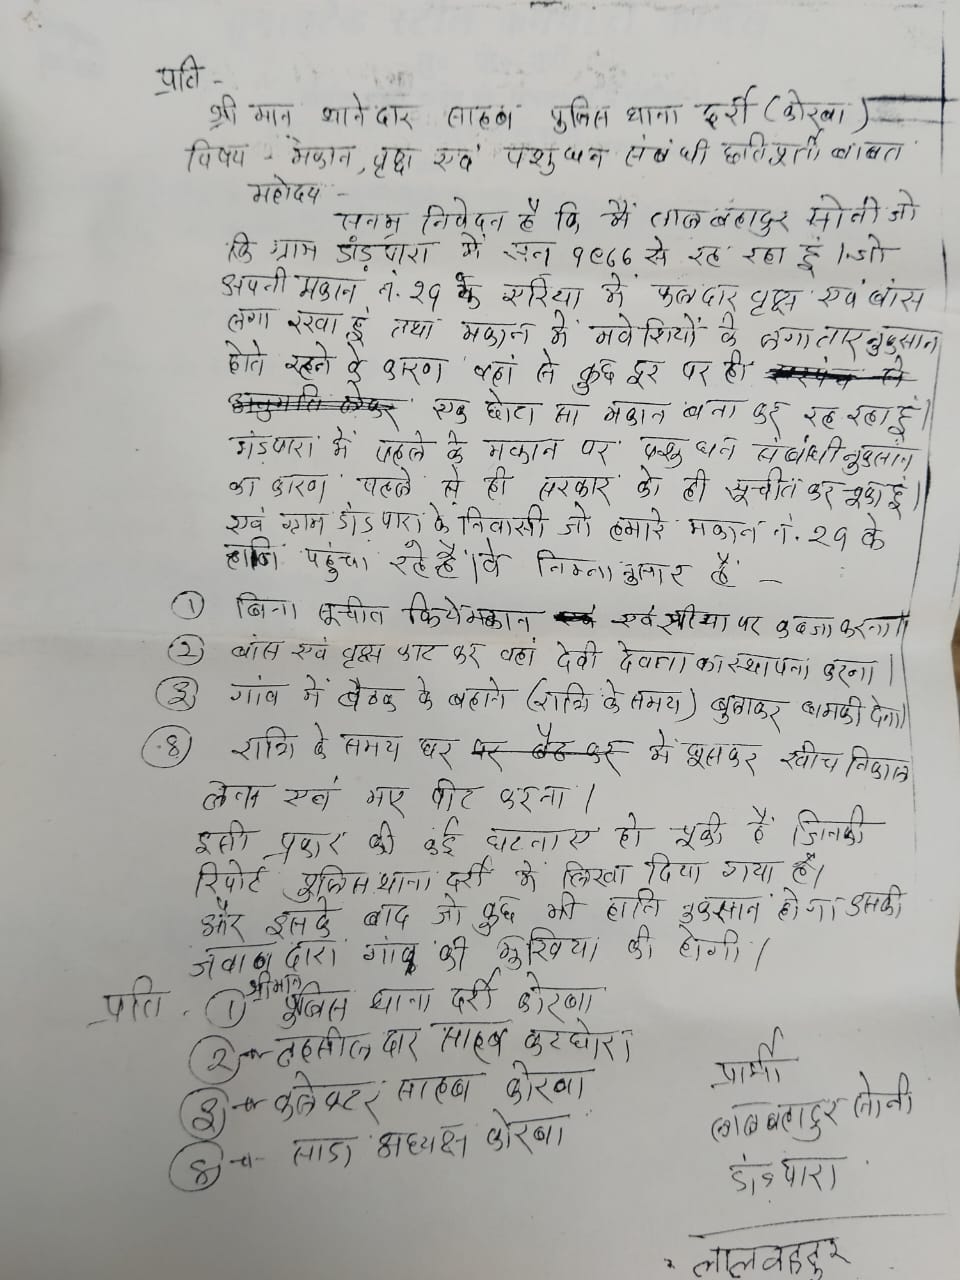 प्रति -
श्री मान थानेदार साहब पुलिस थाना दर्री (कोरबा)
विषय - मकान, वृक्ष एवं पशुधन संबंधी छतिपूर्ती बाबत
महोदय -
सनम्र निवेदन है कि मैं लालबहादुर सोनी जो
कि ग्राम डांड़पारा में सन १९८८ से रह रहा हूं । जो
अपनी मकान नं. २१ के एरिया में फलदार वृक्ष एवं बांस
लगा रखा हूं तथा मकान में मवेशियों के लगातार नुकसान
होते रहने के कारण वहां से कुछ दूर पर ही
एक छोटा सा मकान बना कर रह रहा हूं।
डांड़पारा में पहले के मकान पर पशुधन संबंधी नुकसान
का कारण पहले से ही सरकार को ही सूचीत कर चूका हूं।
एवं ग्राम डांड़पारा के निवासी जो हमारे मकान नं. २१ के
हानि पहुंचा रहे हैं। वे निम्नानुसार हैं -
① बिना सूचीत किये मकान एवं एरीया पर कब्जा करना।
② बांस एवं वृक्ष काट कर वहां देवी देवता का स्थापना करना।
③ गांव में बैठक के बहाने (रात्रि के समय) बुलाकर धमकी देना।
④ रात्रि के समय घर में घूसकर खींच निकाल
लेना एवं मार पीट करना।
इसी प्रकार की कई घटनाए हो चूकी हैं जिनकी
रिपोर्ट पुलिस थाना दर्री में लिखा दिया गया है।
और इसके बाद जो कुछ भी हानि नुकसान होगा उसकी
जवाबदारी गांव की मुखिया की होगी।
प्रति - ① श्रीमान पुलिस थाना दर्री कोरबा
② -"- तहसीलदार साहब कटघोरा
③ -"- कलेक्टर साहब कोरबा
④ -"- साडा अध्यक्ष कोरबा
प्रार्थी
लालबहादुर सोनी
डांड़पारा
लालबहादुर